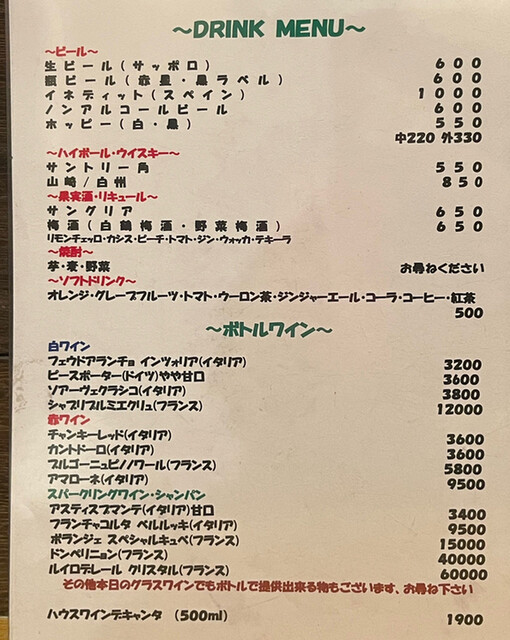 ～DRINK MENU～
～ビール～
生ビール(サッポロ) 600
瓶ビール(赤星・黒ラベル) 600
イネディット(スペイン) 1000
ノンアルコールビール 600
ホッピー(白・黒) 550
中220 外330
～ハイボール・ウイスキー～
サントリー角 550
山崎/白州 850
～果実酒・リキュール～
サングリア 650
梅酒(白鶴梅酒・野菜梅酒) 650
リモンチェッロ・カシス・ピーチ・トマト・ジン・ウォッカ・テキーラ
～焼酎～
芋・麦・野菜 お尋ねください
～ソフトドリンク～
オレンジ・グレープフルーツ・トマト・ウーロン茶・ジンジャーエール・コーラ・コーヒー・紅茶
500
～ボトルワイン～
白ワイン
フェウドアランチョ インツォリア(イタリア) 3200
ピースポーター(ドイツ)やや甘口 3600
ソアーヴェクラシコ(イタリア) 3800
シャブリプルミエクリュ(フランス) 12000
赤ワイン
チャンキーレッド(イタリア) 3600
カントドーロ(イタリア) 3600
ブルゴーニュピノノワール(フランス) 5800
アマローネ(イタリア) 9500
スパークリングワイン・シャンパン
アスティスプマンテ(イタリア)甘口 3400
フランチャコルタ ベルルッキ(イタリア) 9500
ボランジェ スペシャルキュベ(フランス) 15000
ドンペリニョン(フランス) 40000
ルイロデレール クリスタル(フランス) 60000
その他本日のグラスワインでもボトルで提供出来る物もございます、お尋ね下さい
ハウスワインデキャンタ (500ml) 1900